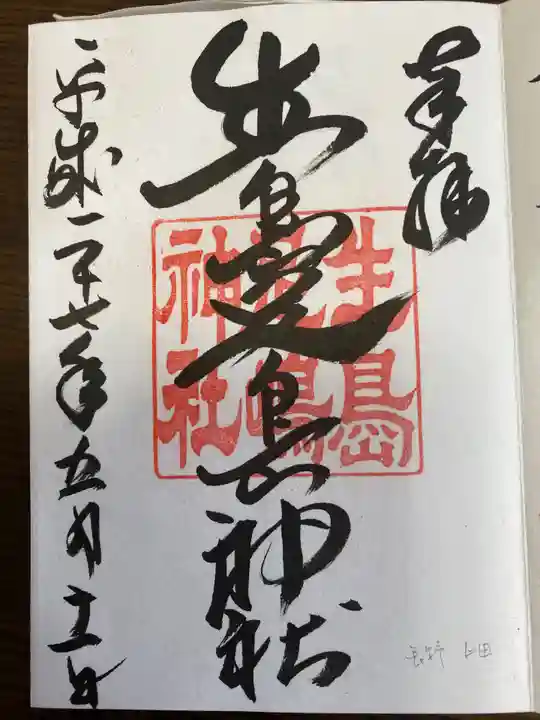 奉拝
生島足島神社
生島
足嶋
神社
平成二十七年五月十二日
長野 上田